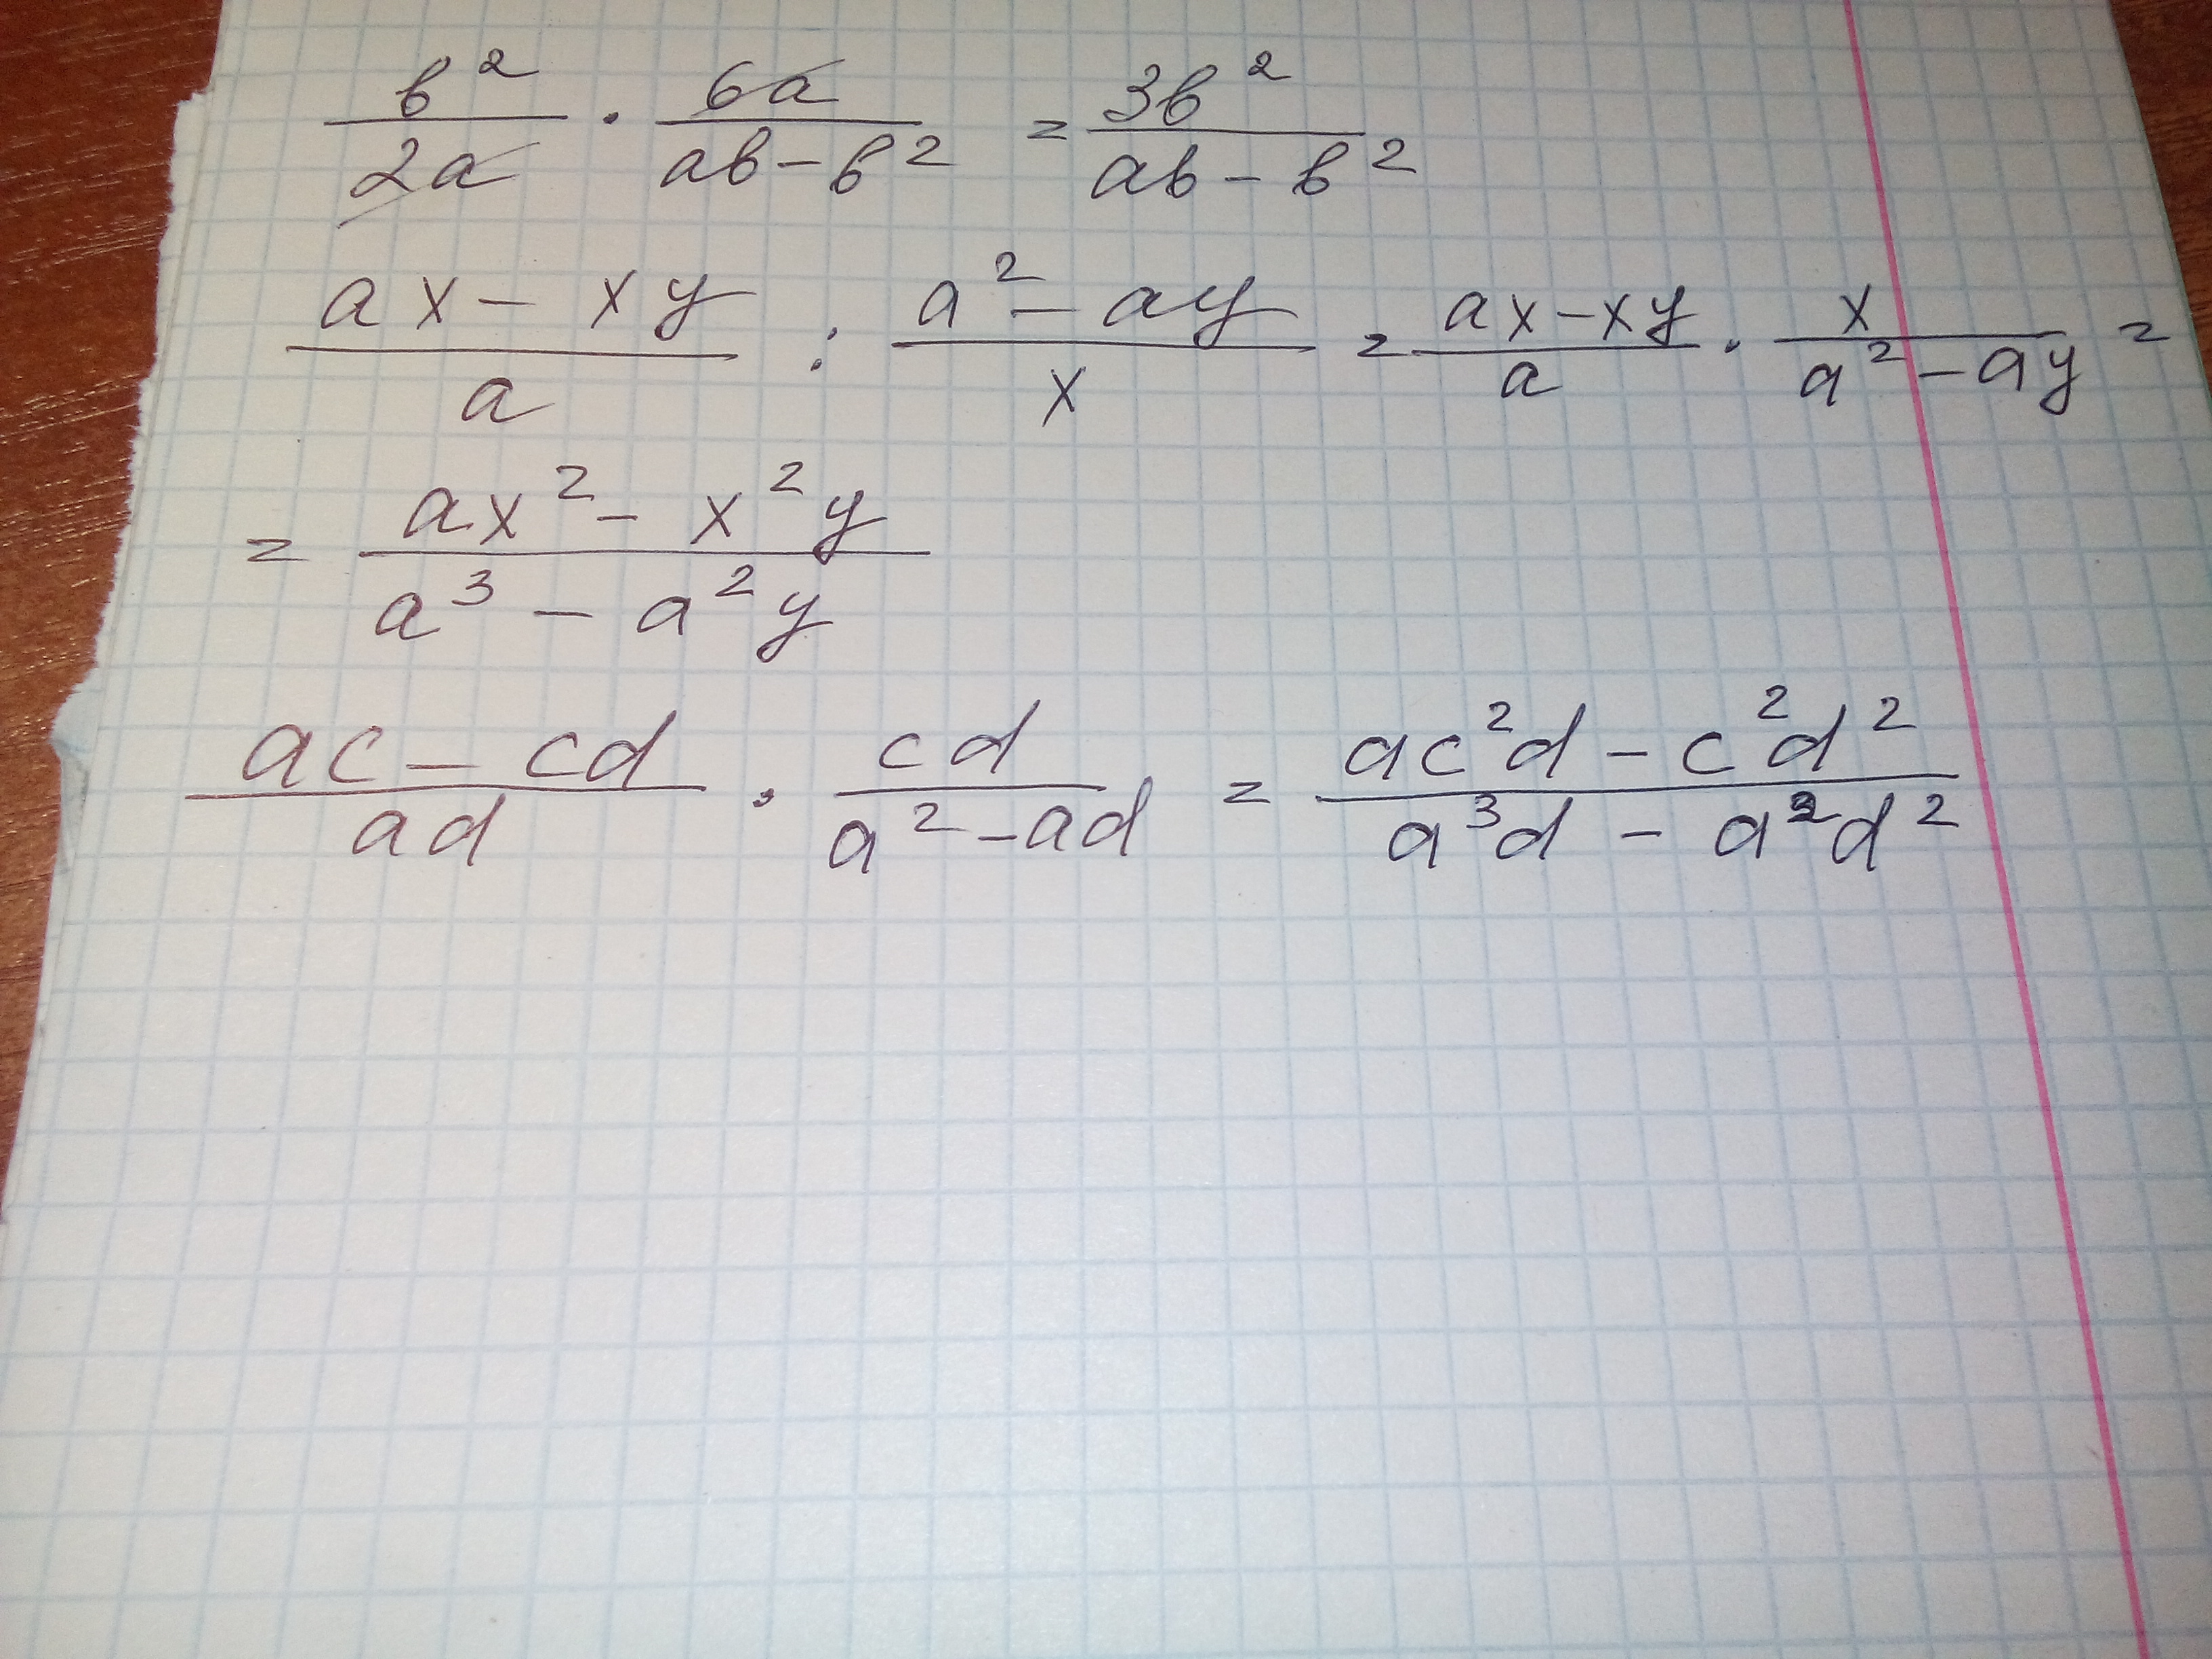 b²/2a · 6a/ab-b² = 3b²/ab-b²
ax-xy/a : a²-ay/x = ax-xy/a · x/a²-ay =
= ax²-x²y/a³-a²y
ac-cd/ad · cd/a²-ad = ac²d-c²d²/a³d-a²d²